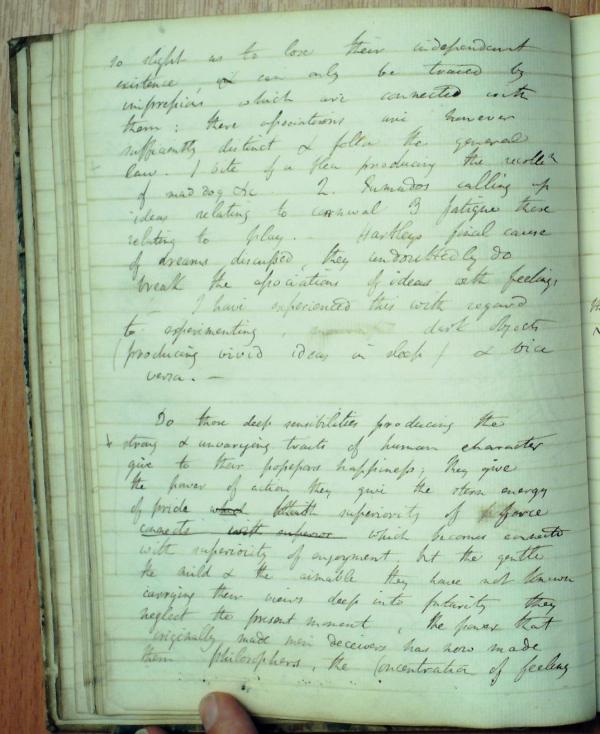 so slight as to lose their independent
existence, & can only be traced by
impressions which are connected with
them: these associations are however
sufficiently distinct & follow the general
law. 1 bite of a flea producing the recoll
of mad dog &c 2. calling up
ideas relating to carnival 3 fatigue those
relating to play. Hartleys final cause
of dreams discussed, they undoubtedly do
break the associations of ideas with feelings
— I have experienced this with regard
to experimenting, dark objects
(producing vivid ideas in sleep) & vice
versa. —
Do those deep sensibilities producing the
strong & unvarying tracts of human character
give to their possessors happiness; they give
the power of action they give the stern energy
of pride superiority of force
connects with superior which becomes connects
with superiority of enjoyment. but the gentle
the mild & the aimable they have not known
carrying their views deep into futurity they
neglect the present moment, the power that
originally made men deceivers has now made
them philosophers, the concentration of feeling